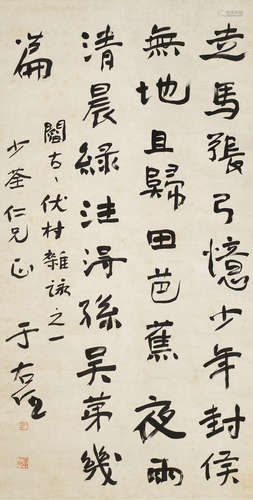 立馬張弓憶少年封侯
無地且歸田芭蕉夜雨
清晨綠注得孫吳苐幾
篇
閻古〻伏村雜詠之一
少荃仁兄正
于右任